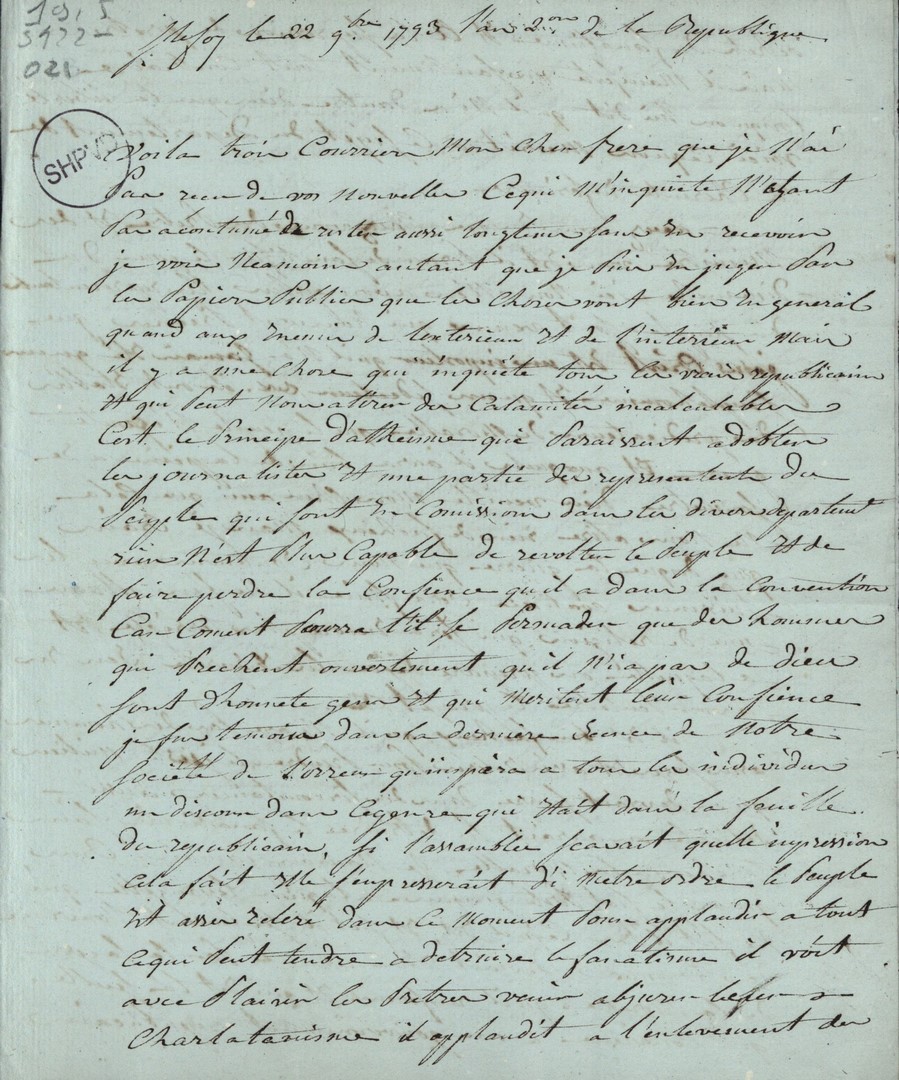 19, 5
5922-
021
SHPVD
Ste foy le 22 9bre 1793 l'an 2on de la Republique
Voila trois Courriers Mon Cher frere que je N'ai
Pas recu de vos Nouvelles Cequi M'inquiete N'etant
Pas acoutumé de rester aussi longtems sans en recevoir
je vois Neamoins autant que je Puis en juger Par
les Papiers Publics que les Choses vont bien en general
quand aux enemis de lexterieur et de l'interieur Mais
il y a une Chose qui inquiéte tous les vrais republicains
et qui Peut Nous attirer des Calamites incalculables
Cest le Principe d'atheisme que Paraissent adobter
les journalistes et une partie des representents du
Peuple qui sont en Comission dans les divers departent
rien N'est Plus Capable de revolter le Peuple et de
faire perdre la Confience qu'il a dans la Convention
Car Coment Pourra t'il se Persuader que des hommes
qui Prechent ouvertement qu'il N'i a pas de dieu
sont d'honnete gens et qui Meritent leur Confience
je fus temoins dans la derniere Seence de Notre
Société de l'orreur qu'inspira a tous les individus
un discours dans cegenre qui etait dans la feuille
du republicain, si l'assamblee scavait quelle inpression
cela fait elle s'enpresserait d'i Metre ordre le Peuple
et asser zeleré dans Ce Moment Pour applaudir a tout
cequi Peut tendre a detruire le fanatisme il voit
avec Plaisir les Pretres venir abjurer
Charlatanisme il applaudit a l'enlevement des